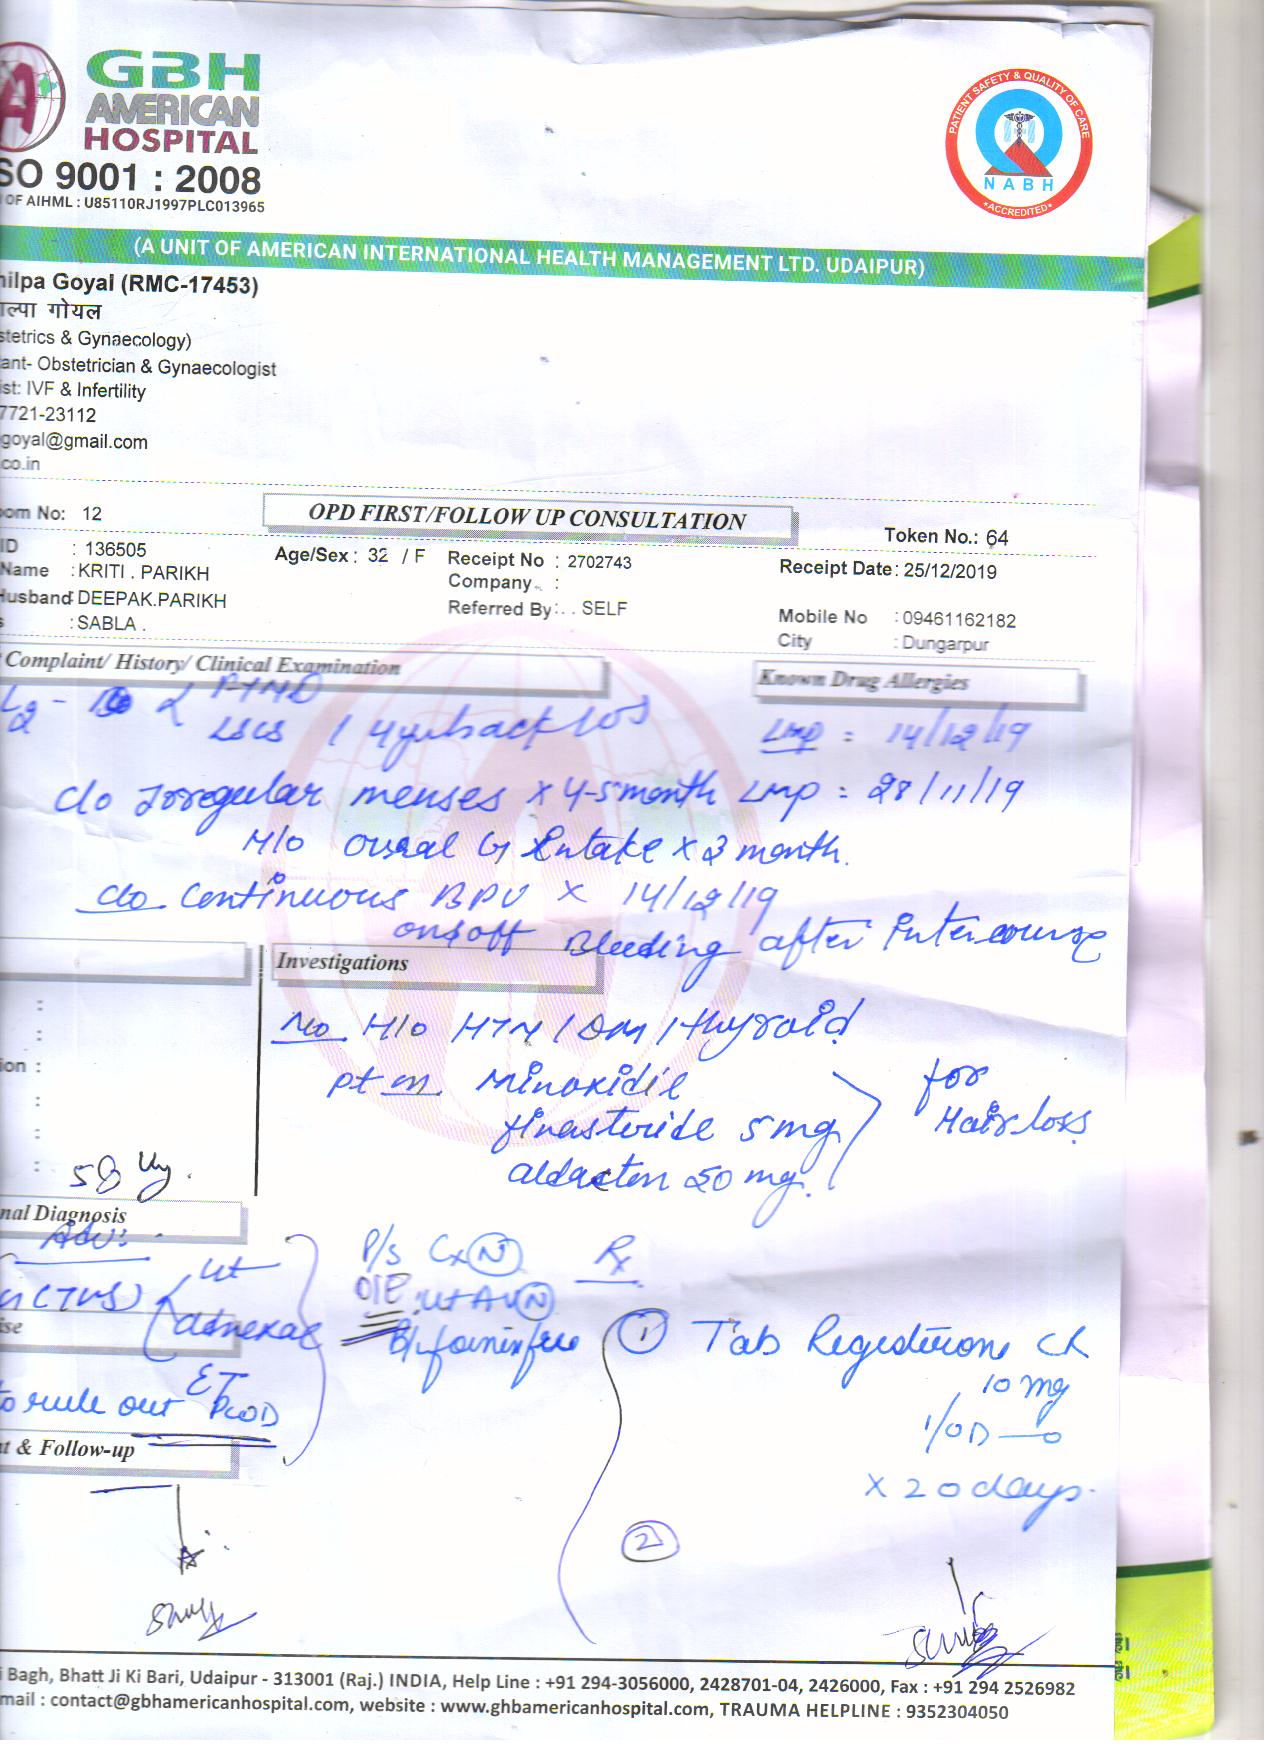 GBH
AMERICAN
HOSPITAL
SO 9001 : 2008
OF AIHML : U85110RJ1997PLC013965
PATIENT SAFETY & QUALITY OF CARE
NABH
ACCREDITED
(A UNIT OF AMERICAN INTERNATIONAL HEALTH MANAGEMENT LTD. UDAIPUR)
hilpa Goyal (RMC-17453)
ल्पा गोयल
stetrics & Gynaecology)
ant- Obstetrician & Gynaecologist
ist: IVF & Infertility
7721-23112
goyal@gmail.com
co.in
oom No: 12
OPD FIRST/FOLLOW UP CONSULTATION
Token No.: 64
ID : 136505
Age/Sex : 32 / F
Receipt No : 2702743
Receipt Date : 25/12/2019
Name : KRITI . PARIKH
Company :
Husband : DEEPAK.PARIKH
Referred By : . . SELF
Mobile No : 09461162182
s : SABLA .
City : Dungarpur
Complaint/ History/ Clinical Examination
Known Drug Allergies
L2 - < FTND
LSCS / 4 yrs back LOS
LMP : 14/12/19
c/o Irregular menses x 4-5 month LMP : 28/11/19
H/o Ovral G Intake x 3 month.
c/o Continuous BPV x 14/12/19
on & off Bleeding after Intercourse
Investigations
No H/o HTN / DM / thyroid
pt on Minoxidil
finasteride 5 mg
aldacton 50 mg.
for
Hair loss
ion :
58 kg.
nal Diagnosis
Adv:
(TVS)
ut
adnexae
ET
to rule out PCOD
ise
t & Follow-up
P/s Cx N
Rx
O/E ut AV N
B/L fornix free
1 Tab Regesterone CR
10 mg
1/OD
x 20 days.
2
i Bagh, Bhatt Ji Ki Bari, Udaipur - 313001 (Raj.) INDIA, Help Line : +91 294-3056000, 2428701-04, 2426000, Fax : +91 294 2526982
mail : contact@gbhamericanhospital.com, website : www.ghbamericanhospital.com, TRAUMA HELPLINE : 9352304050